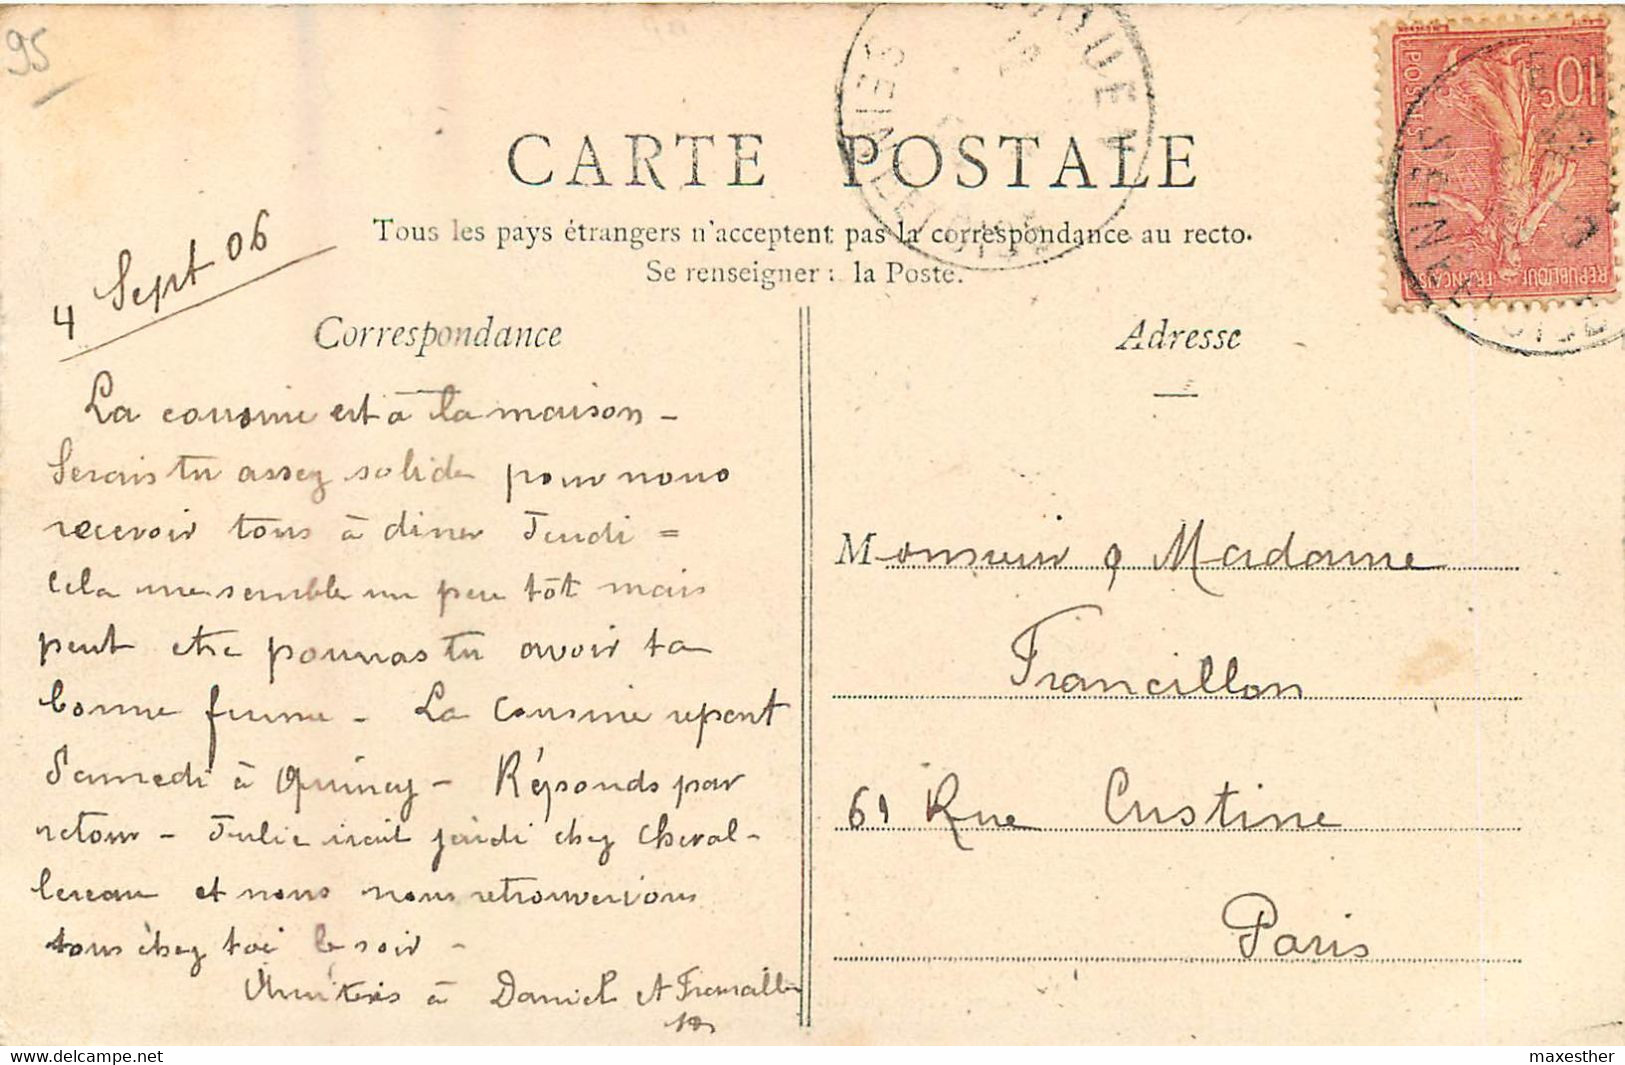 95
CARTE POSTALE
Tous les pays étrangers n'acceptent pas la correspondance au recto.
Se renseigner : la Poste.
4 Sept 06
Correspondance
La cousine est à la maison -
Serais tu assez solide pour nous
recevoir tous à diner Jeudi =
Cela me semble un peu tôt mais
peut etre pourras tu avoir ta
bonne femme - La Cousine repart
Samedi à Quincy - Réponds par
retour - Julie irait jeudi chez Cheval-
lereau et nous nous retrouverions
tous chez toi le soir -
Amitiés à Daniel et Francillon
Adresse
Monsieur & Madame
Francillon
61 Rue Custine
Paris
10c
POSTES
REPUBLIQUE FRANÇAISE
SEINE-ET-OISE
maxesther